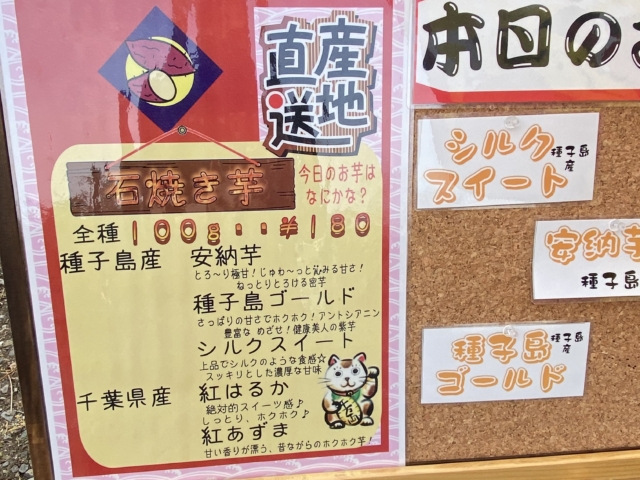 産地
直送
石焼き芋
今日のお芋は
なにかな？
全種 100g・・¥180
種子島産 安納芋
とろ～り極甘！じゅわ～っと沁みる甘さ！
ねっとりとろける蜜芋
種子島ゴールド
さっぱりの甘さでホクホク！アントシアニン
豊富な めざせ！健康美人の紫芋
シルクスイート
上品でシルクのような食感☆
スッキリとした濃厚な甘味
千葉県産 紅はるか
絶対的スイーツ感♪
しっとり、ホクホク♪
紅あずま
甘い香りが漂う、昔ながらのホクホク芋！
本日のお
シルク
スイート
種子島
産
安納芋
種子島
種子島
ゴールド
種子島
産